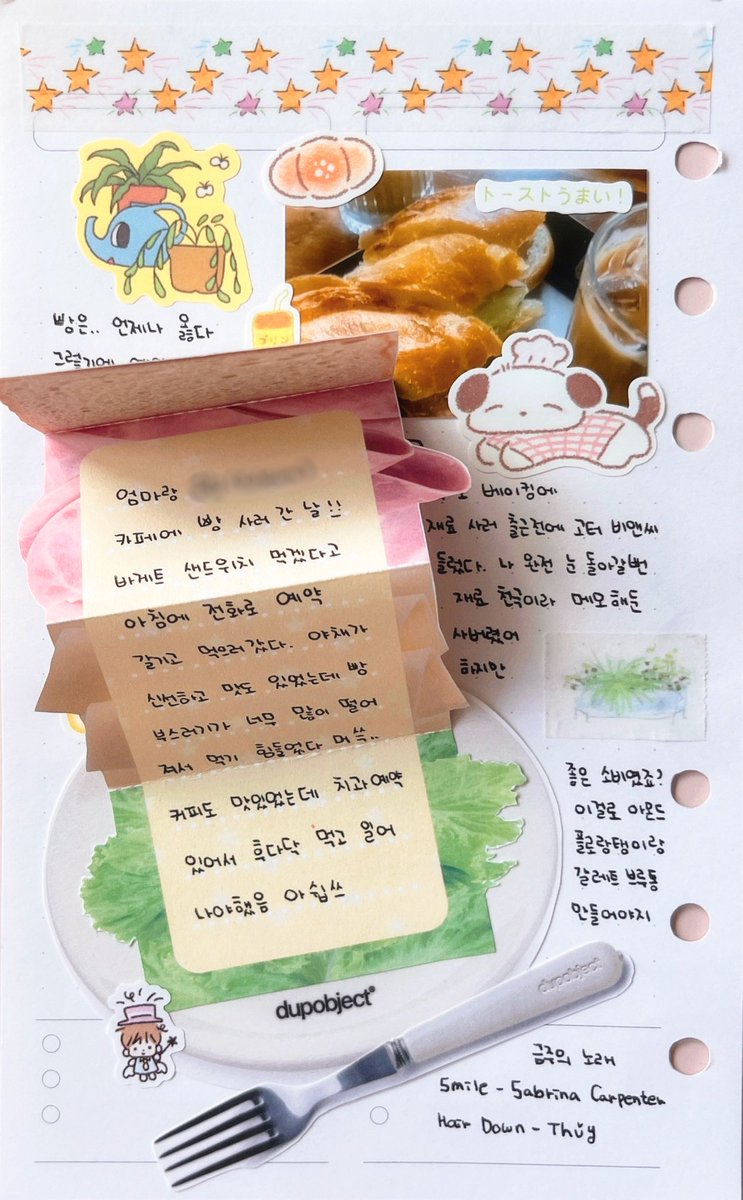 トーストうまい!
プリン
빵은.. 언제나 옳다
그렇기에
엄마랑
카페에 빵 사러 간 날!!
바게트 샌드위치 먹겠다고
아침에 전화로 예약
갈기고 먹으러갔다. 야채가
신선하고 맛도 있었는데 빵
부스러기가 너무 많이 떨어
져서 먹기 힘들었다 머쓱..
커피도 맛있었는데 치과예약
있어서 후다닥 먹고 일어
나야했음 아쉽쓰
dupobject
베이킹에
재료 사러 출근전에 고터 비앤씨
들렀다. 나 완전 눈 돌아갈뻔
재료 천국이라 메모해둔
사버렸어
하지만
좋은 소비였죠?
이걸로 아몬드
플로랑탱이랑
갈레트 브루통
만들어야지
dupobject
금주의 노래
Smile - Sabrina Carpenter
Hair Down - Thuy